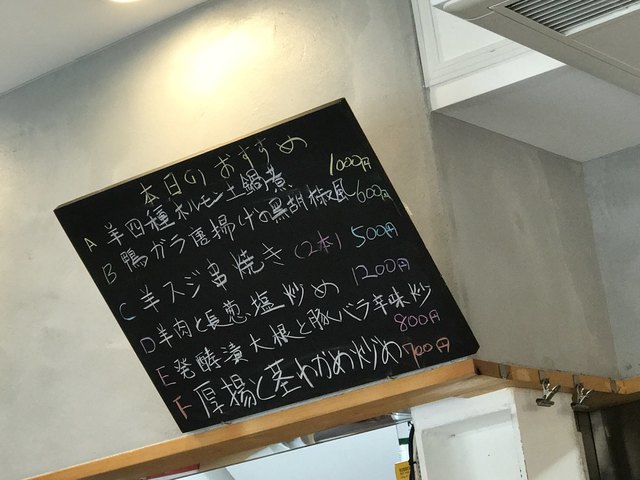 本日のおすすめ
A 羊四種ホルモン土鍋煮 1000円
B 鴨ガラ唐揚げの黒胡椒風 600円
C 羊スジ串焼き (2本) 500円
D 羊肉と長葱塩炒め 1200円
E 発酵漬大根と豚バラ辛味炒 800円
F 厚揚と茎わかめ炒め 700円